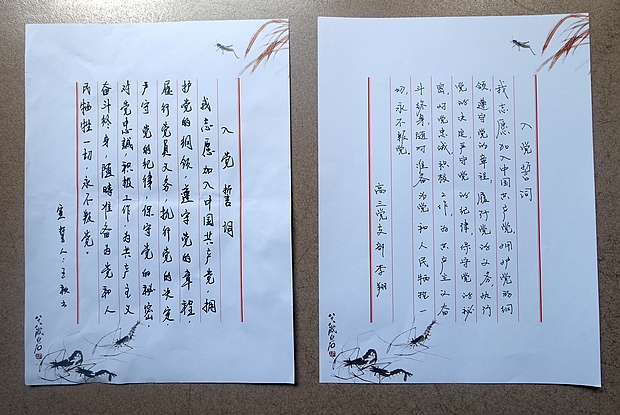 入党誓词
我志愿加入中国共产党，拥
护党的纲领，遵守党的章程，
履行党员义务，执行党的决定，
严守党的纪律，保守党的秘密，
对党忠誠，积极工作，为共产主义
奋斗终身，随時准备为党和人
民牺牲一切，永不叛党。
宣誓人：王
白石
入党誓词
我志愿加入中国共产党，拥护党的纲
领，遵守党的章程，履行党的义务，执行
党的决定，严守党的纪律，保守党的秘
密，对党忠诚，积极工作，为共产主义奋
斗终身，随时准备为党和人民牺牲一
切，永不叛党。
高三党支部 李翔
白石